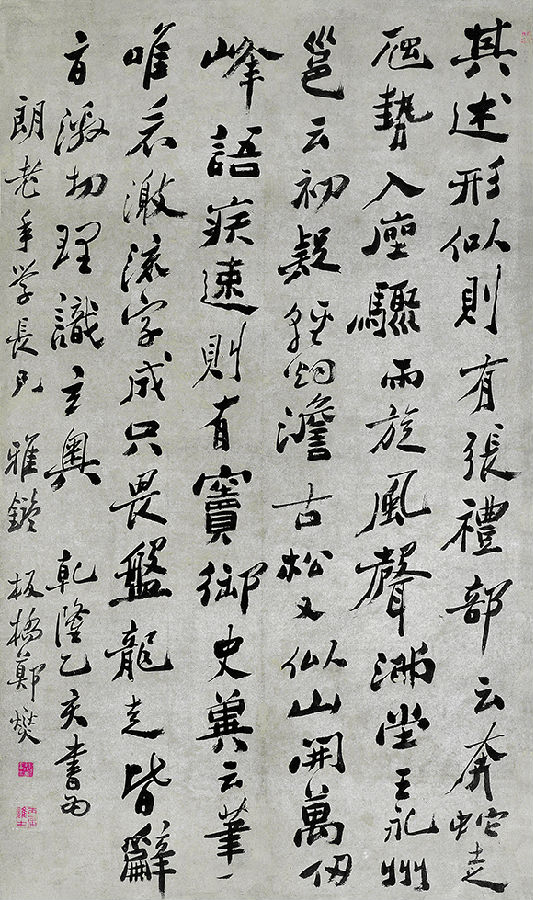 其述形似則有張禮部云奔蛇走
虺勢入座驟雨旋風聲滿堂王永州
邕云初疑輕烟澹古松又似山開萬仞
峰語疾速則有竇御史冀云筆一
唯看激流字成只畏盤龍走皆辭
旨激切理識玄奧 乾隆乙亥書為
朗老年学長兄 雅鑒 板橋鄭燮